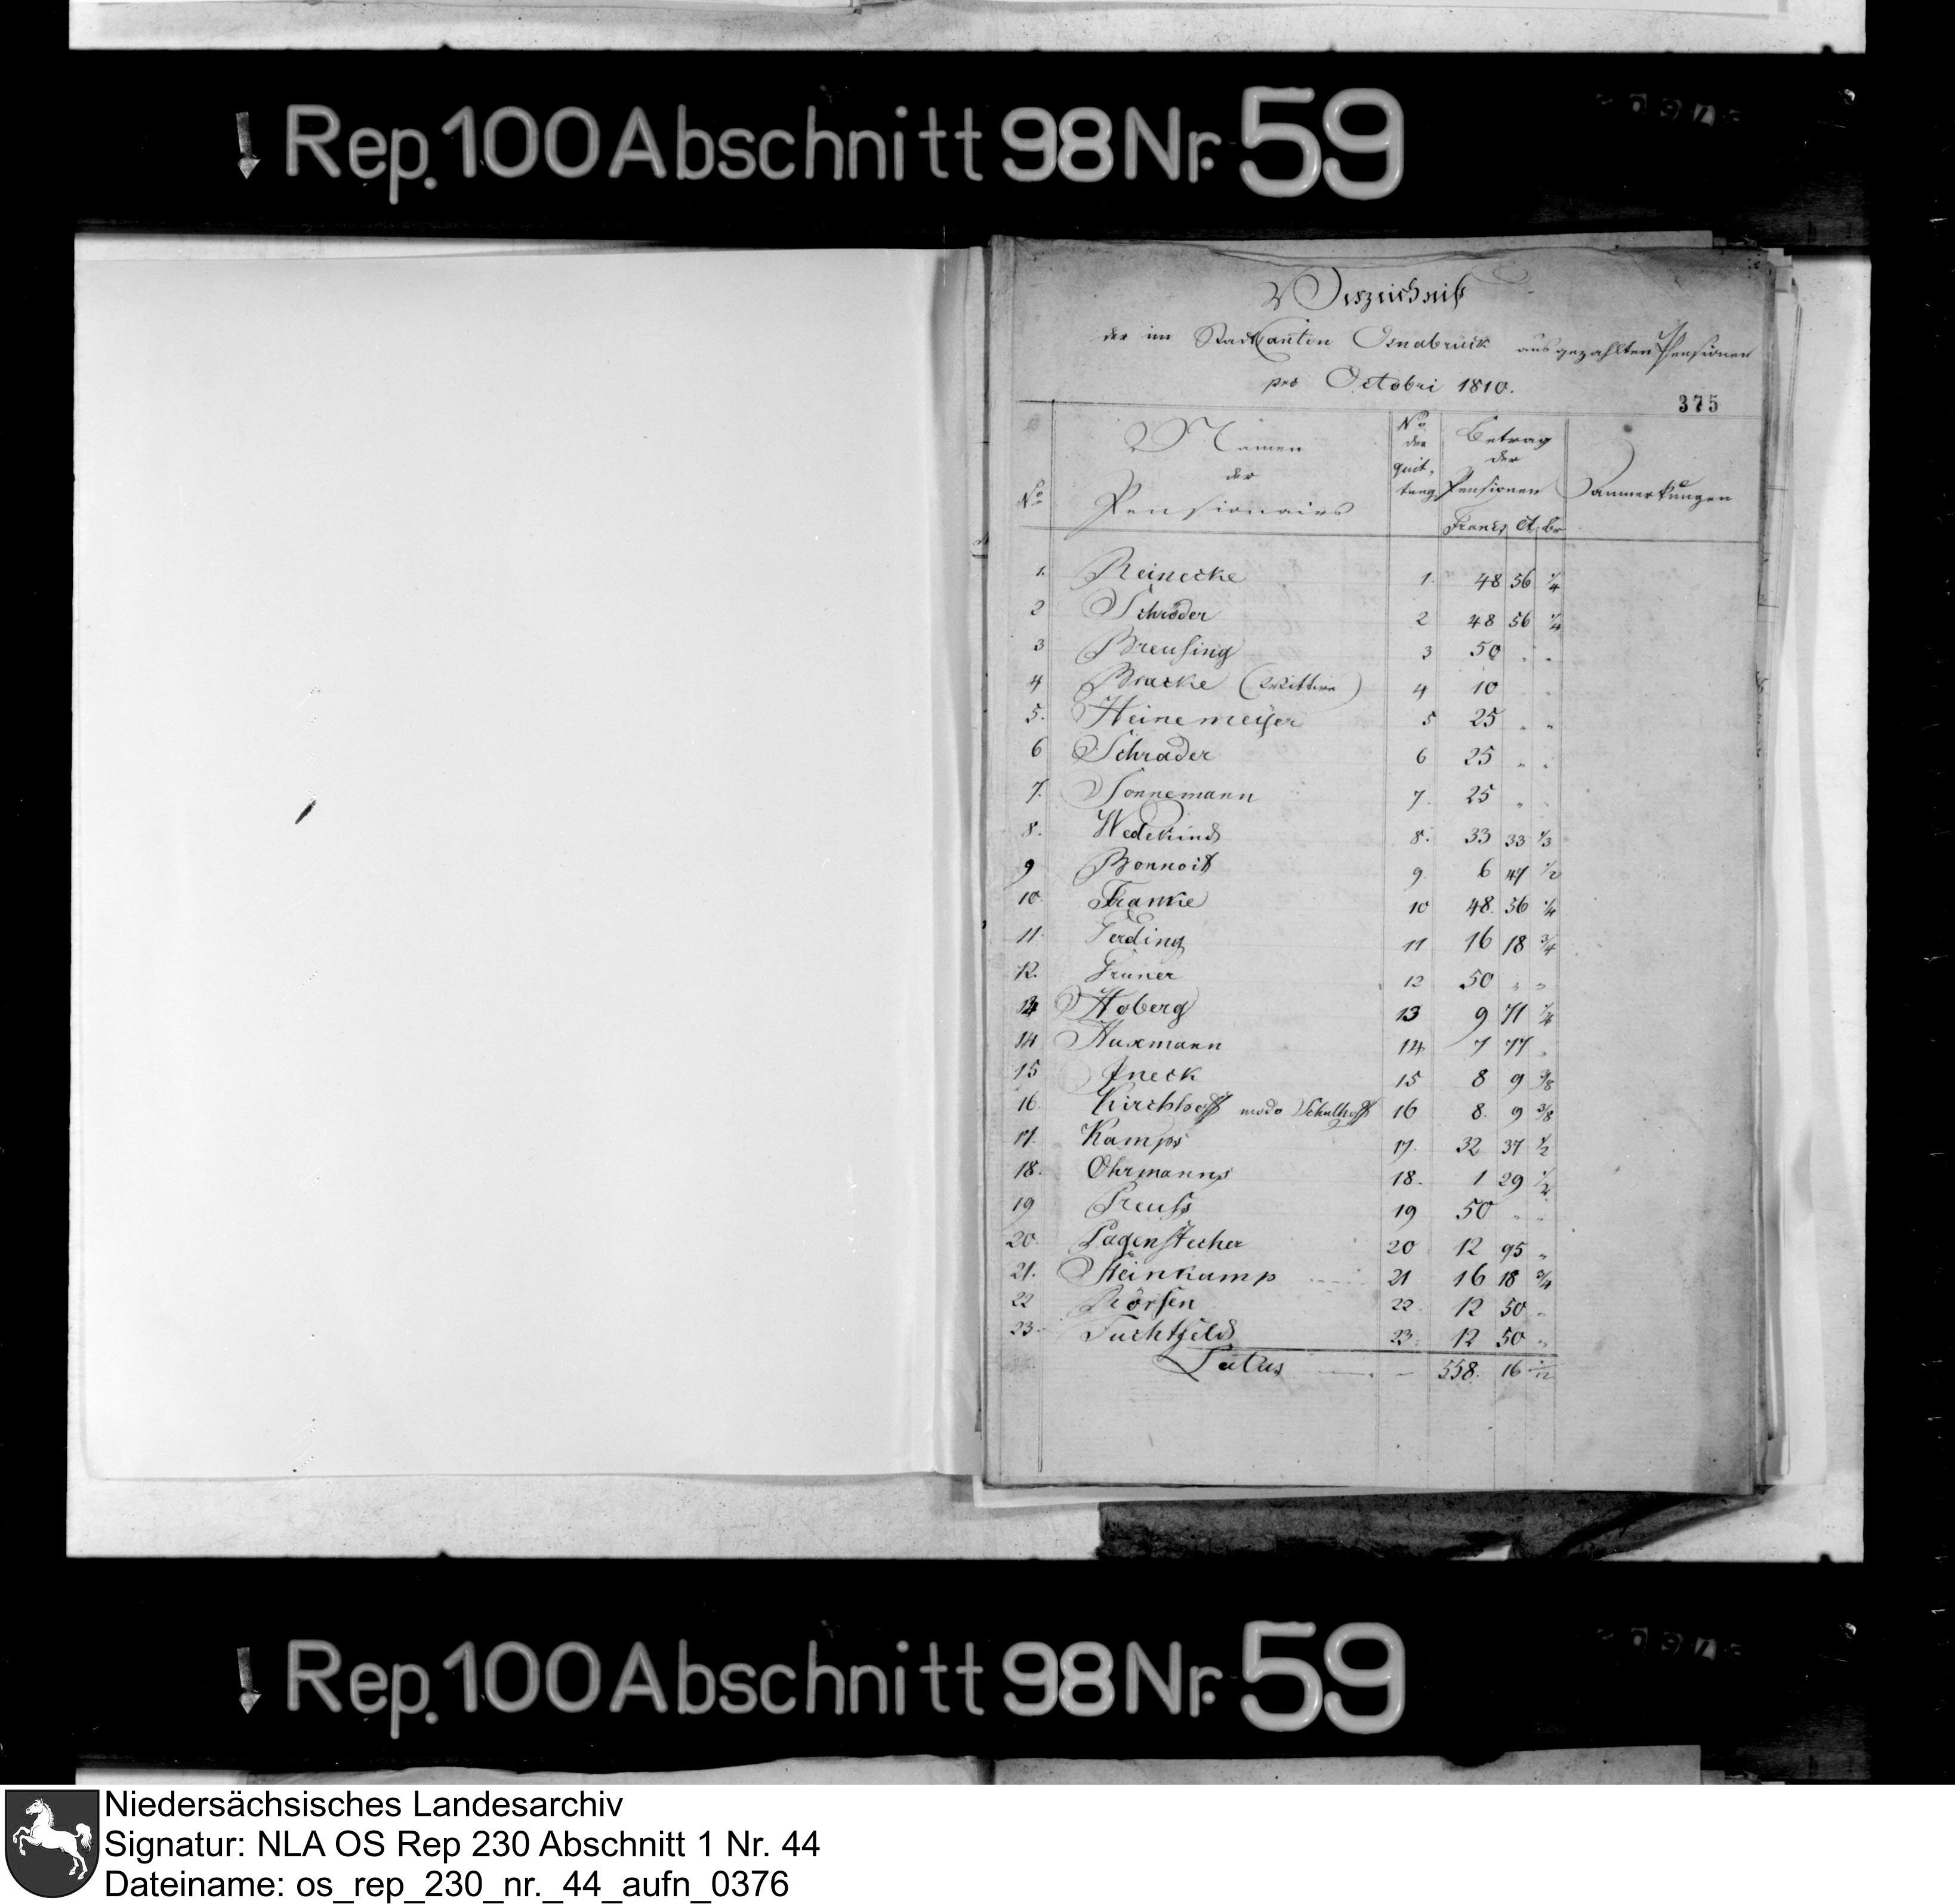 Rep. 100 Abschnitt 98 Nr. 59
Verzeichniß
der im Stadt Canton Osnabrück ausgezahlten Pensionen
pro Octobri 1810.
375
No Namen der Pensionairs No der Quittung Betrag der Pensionen Anmerkungen
Francs Ct
1. Reinecke 1. 48 56 1/4
2 Schröder 2 48 56 1/4
3 Breusing 3 50 " "
4 Bracke (Wittwe) 4 10 " "
5. Heinemeyer 5 25 " "
6 Schrader 6 25 " "
7. Sonnemann 7. 25 " "
8. Wedekind 8. 33 33 1/3
9 9 6 47 1/2
10 Franke 10 48. 56 1/4
11. Ferding 11 16 18 3/4
12. Früner 12 50 " "
Hoberg 13 9 71 1/4
14 Huxmann 14 7 77 "
15 Jneck 15 8 9 3/8
16. Kirchhoff modo Schulhoff 16 8. 9 3/8
17. Kamps 17. 32 37 1/2
18. Ohrmanns 18. 1 29 1/2
19 Preuss 19 50 " "
20. Pagenstecher 20 12 95 "
21. Steinkamp 21 16 18 3/4
22 Rörsen 22. 12 50 "
23. Tuchtfeld 23. 12 50 "
Latus 558. 16
Rep. 100 Abschnitt 98 Nr. 59
Niedersächsisches Landesarchiv
Signatur: NLA OS Rep 230 Abschnitt 1 Nr. 44
Dateiname: os_rep_230_nr._44_aufn_0376